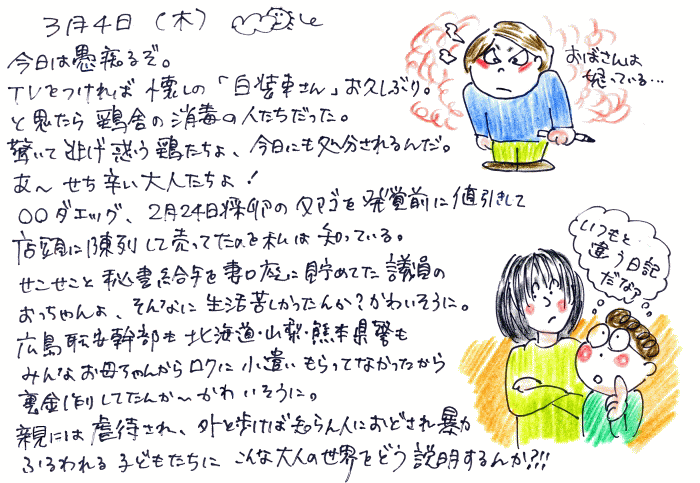 3月4日(木)
今日は愚痴るぞ。
TVをつければ 懐しの「白装束さん」お久しぶり。
と思たら 鶏舎の消毒の人たちだった。
驚いて逃げ惑う鶏たちょ、今日にも処分されるんだ。
あ〜 せち辛い大人たちよ!
○○ダエッグ、2月24日採卵のタマゴを発覚前に値引きして
店頭に陳列して売ってたのを私は知っている。
せこせこと 秘書給与を妻口座に貯めてた議員の
おっちゃんよ、そんなに生活苦しかったんか?かわいそうに。
広島 幹部も 北海道・山梨・熊本県警も
みんなお母ちゃんからロクに小遣いもらってなかったから
裏金作りしてたんか〜かわいそうに。
親には虐待され、外を歩けば知らん人におどされ暴力
ふるわれる子どもたちに こんな大人の世界をどう説明するんか?!!
おばさんは
怒っている…
いつもと
違う日記
だなア。。